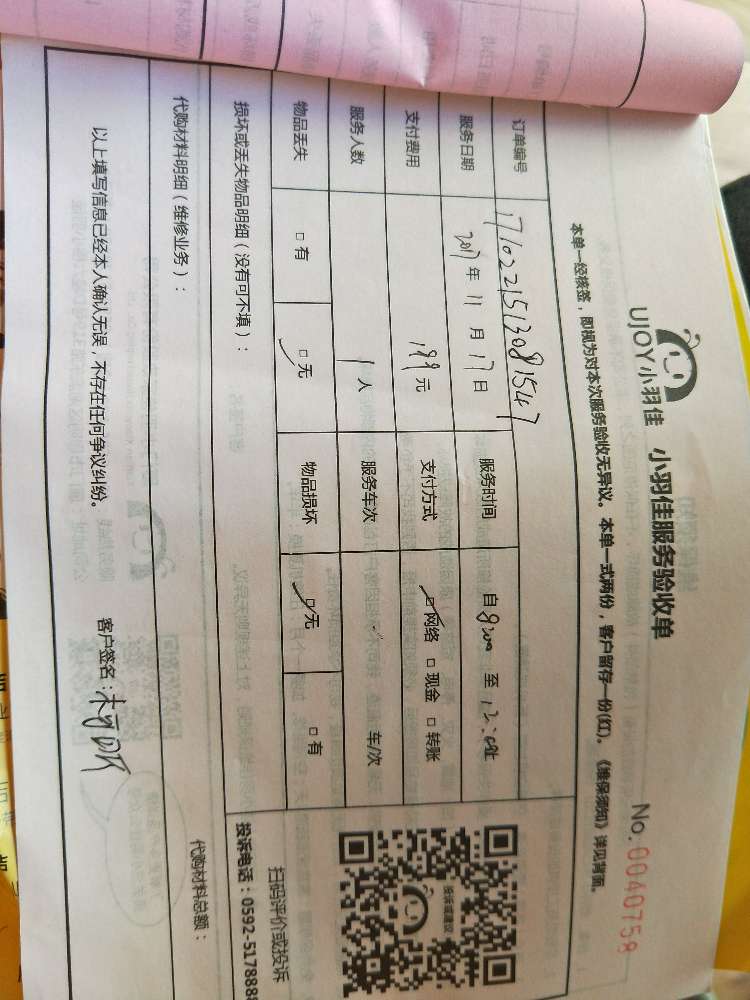 UJOY小羽佳
小羽佳服务验收单
No.0040758
本单一经核签，即视为对本次服务验收无异议。本单一式两份，客户留存一份(红)。《维保须知》详见背面。
订单编号 1710221513081547
服务日期 2017年11月17日 服务时间 自8:00至12:00止
支付费用 199元 支付方式 □网络 □现金 □转账
服务人数 1人 服务车次 车/次
物品丢失 □有 □无 物品损坏 □无 □有
损坏或丢失物品明细（没有可不填）：
代购材料明细（维修业务）：
代购材料总额：
以上填写信息已经本人确认无误，不存在任何争议纠纷。
客户签名：
投诉或建议
扫码评价或投诉
投诉电话：0592-5178888